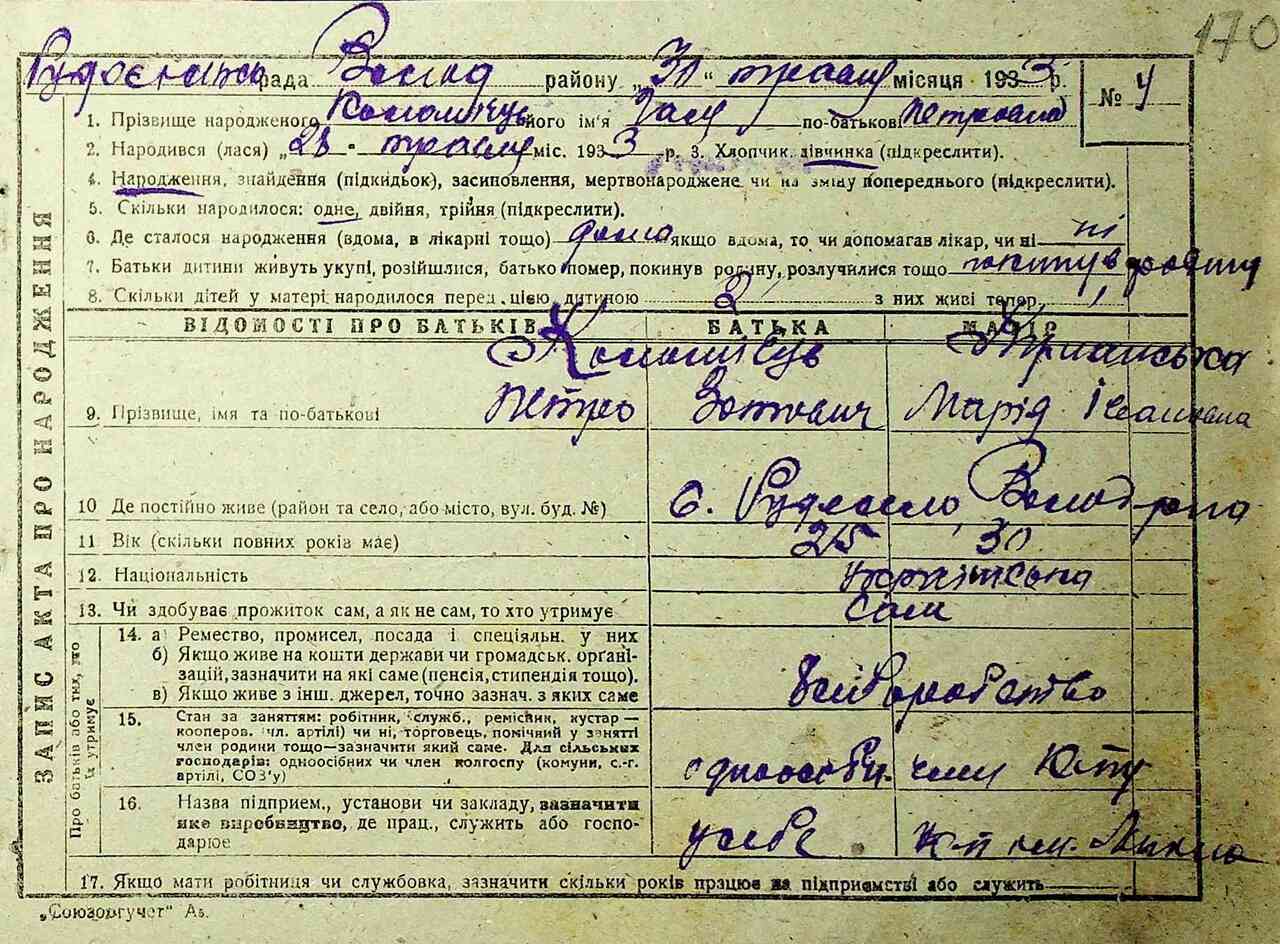 170
рада Волод району „30“ травня місяця 1933 р.
№ 4
ЗАПИС АКТА ПРО НАРОДЖЕННЯ
1. Прізвище народженого Коломієць його ім'я Галя по-батькові Петровна
2. Народився (лася) „28“ травня міс. 1933 р. 3. Хлопчик, дівчинка (підкреслити).
4. Народження, знайдення (підкидьок), засиновлення, мертвонароджене чи на зміну попереднього (підкреслити).
5. Скільки народилося: одне, двійня, трійня (підкреслити).
6. Де сталося народження (вдома, в лікарні тощо) дома якщо вдома, то чи допомагав лікар, чи ні ні
7. Батьки дитини живуть укупі, розійшлися, батько помер, покинув родину, розлучилися тощо покинув родину
8. Скільки дітей у матері народилося перед цією дитиною 2 з них живі тепер 1
ВІДОМОСТІ ПРО БАТЬКІВ БАТЬКА МАТІР
Коломієць
9. Прізвище, імя та по-батькові Петро Марія Івановна
10 Де постійно живе (район та село, або місто, вул. буд. №) с. Рудоєсело Волод. р-на
11 Вік (скільки повних років має) 25 30
12. Національність українська
13. Чи здобуває прожиток сам, а як не сам, то хто утримує сам
Про батьків або тих, хто їх утримує
14. а) Ремество, промисел, посада і спеціяльн. у них
б) Якщо живе на кошти держави чи громадськ. орґані-
зацій, зазначити на які саме (пенсія, стипендія тощо).
в) Якщо живе з інш. джерел, точно зазнач. з яких саме
15. Стан за заняттям: робітник, служб., ремісник, кустар —
кооперов. (чл. артілі) чи ні, торговець, помічний у занятті
член родини тощо—зазначити який саме. Для сільських
господарів: одноосібних чи член колгоспу (комуни, с.-г.
артілі, СОЗ'у) одноособн. член
16. Назва підприєм., установи чи закладу, зазначити
яке виробництво, де прац., служить або госпо-
дарює у себе
17. Якщо мати робітниця чи службовка, зазначити скільки років працює на підприємстві або служить
„Союзоргучет“ Аз.